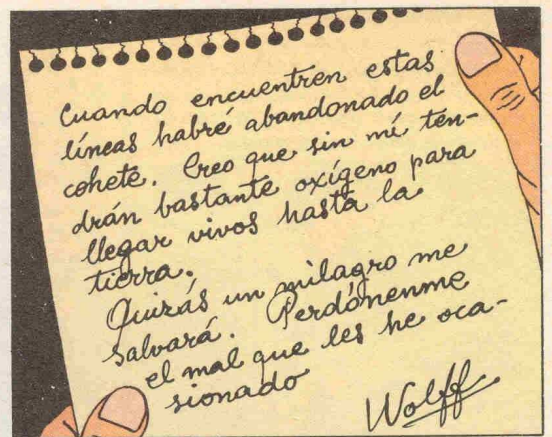 Cuando encuentren estas
líneas habré abandonado el
cohete. Creo que sin mí ten-
drán bastante oxígeno para
llegar vivos hasta la
tierra.
Quizás un milagro me
salvará. Perdónenme
el mal que les he oca-
sionado
Wolff